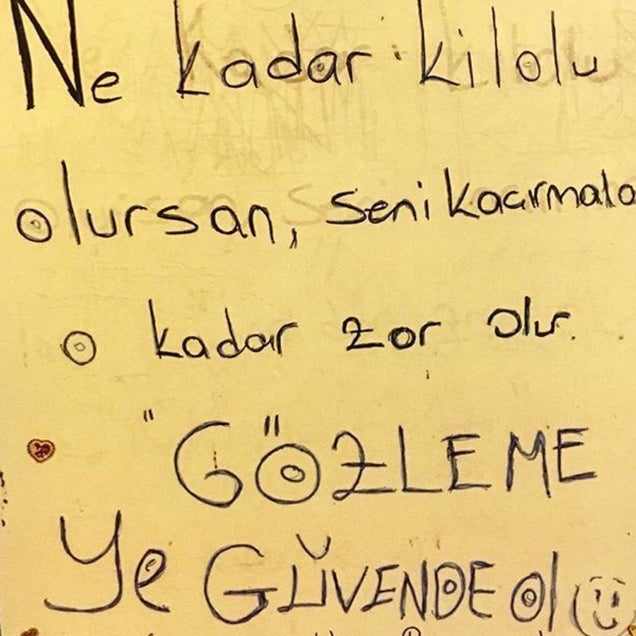 Ne kadar kilolu
olursan, seni kacırmala
o kadar zor olur.
"GÖZLEME
Ye GÜVENDE ol